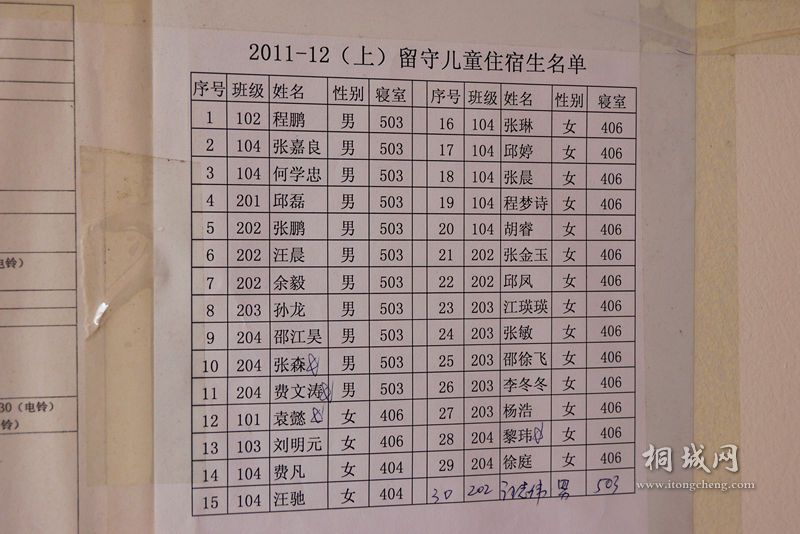 2011-12（上）留守儿童住宿生名单
序号 班级 姓名 性别 寝室 序号 班级 姓名 性别 寝室
1 102 程鹏 男 503 16 104 张琳 女 406
2 104 张嘉良 男 503 17 104 邱婷 女 406
3 104 何学忠 男 503 18 104 张晨 女 406
4 201 邱磊 男 503 19 104 程梦诗 女 406
5 202 张鹏 男 503 20 104 胡睿 女 406
6 202 汪晨 男 503 21 202 张金玉 女 406
7 202 余毅 男 503 22 202 邱凤 女 406
8 203 孙龙 男 503 23 203 江瑛瑛 女 406
9 204 邵江昊 男 503 24 203 张敏 女 406
10 204 张森 男 503 25 203 邵徐飞 女 406
11 204 费文涛 男 503 26 203 李冬冬 女 406
12 101 袁懿 女 406 27 203 杨浩 女 406
13 103 刘明元 女 406 28 204 黎玮 女 406
14 104 费凡 女 404 29 204 徐庭 女 406
15 104 汪驰 女 404 30 202 男 503
电铃）
30（电铃）
（电铃）
桐城网
www.itongcheng.com